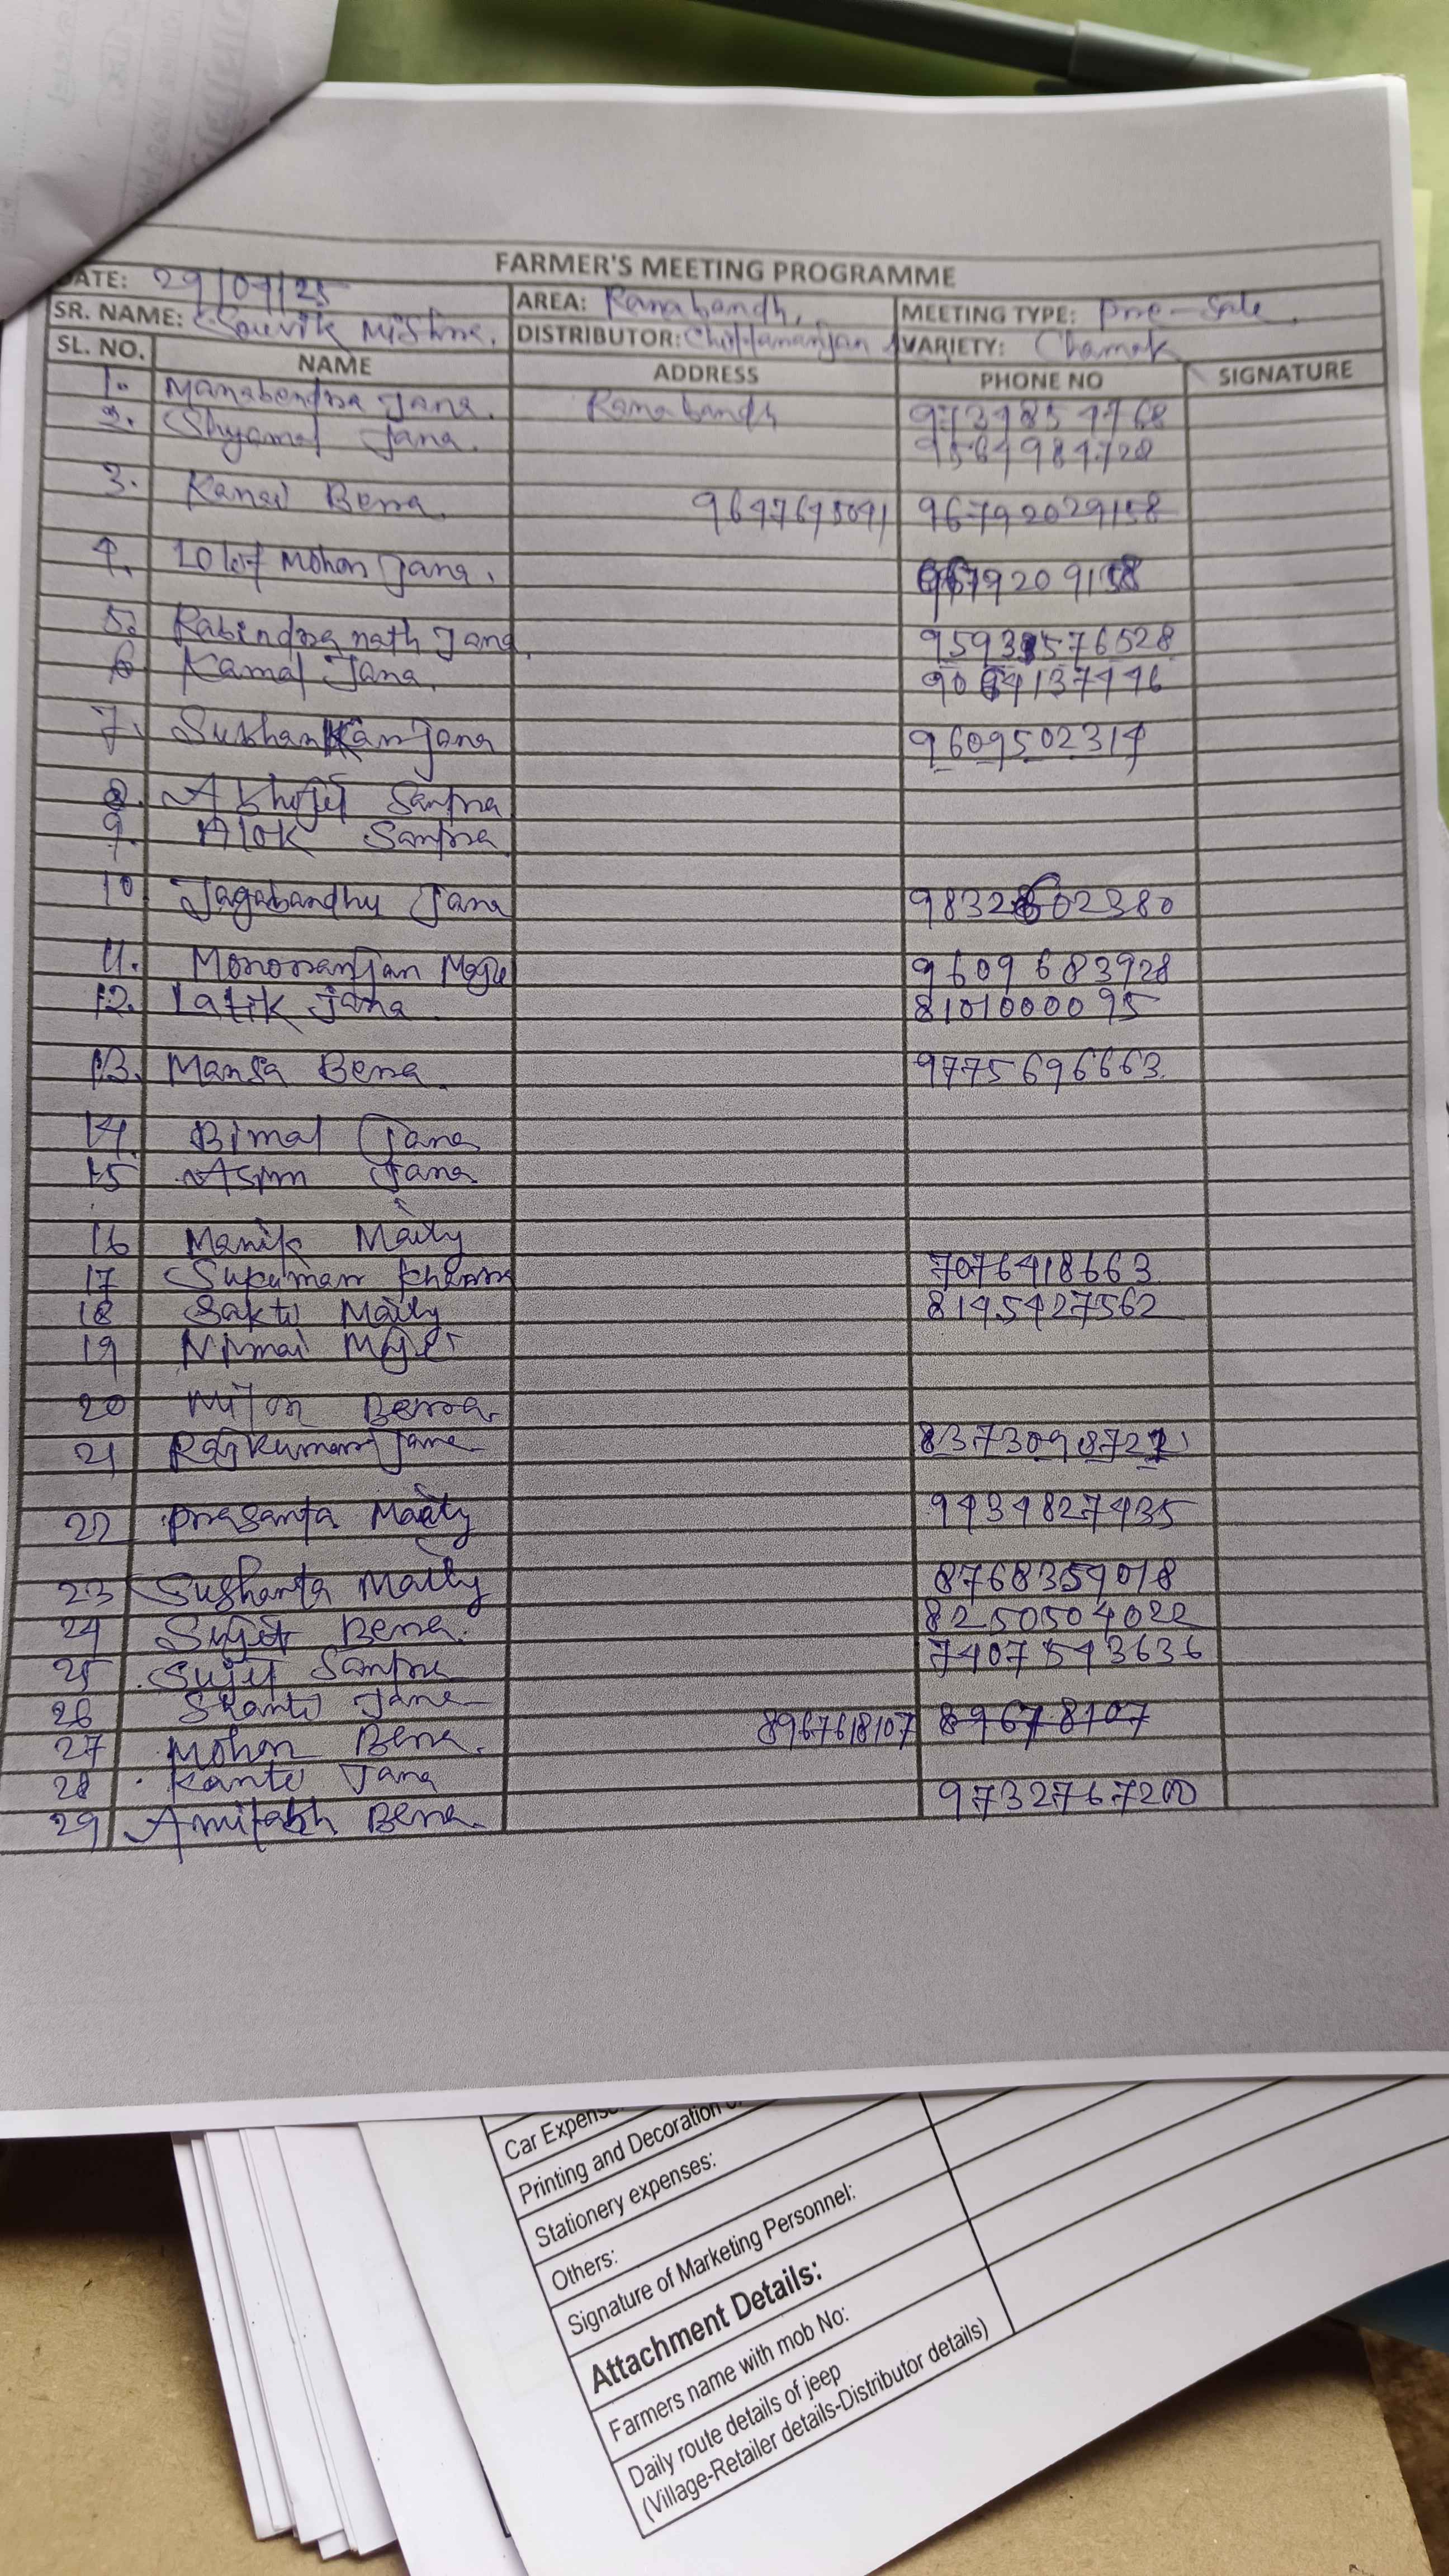 FARMER'S MEETING PROGRAMME
DATE: 29/07/25 AREA: Ranabandh, MEETING TYPE: pre-sale.
SR. NAME: Souvik Mishra. DISTRIBUTOR: Chittaranjan VARIETY: Chamak
SL. NO. NAME ADDRESS PHONE NO SIGNATURE
1. Manabendra Jana. Ranabandh 9734854768
2. Shyamal Jana. 9564984728
3. Kanai Bera. 9647645041 96792029158
4. Lolit Mohan Jana. 9679209158
5. Rabindra nath Jana. 9593576528
6 Kamal Jana. 9064137446
7. Jana 9609502314
8. Abhijit Santra
9. Alok Santra
10 Jagabandhu Jana 9832602380
11. Monoranjan Maji 9609683928
12. Latik Jana. 8101000095
13. Mansa Bera. 9775696663
14. Bimal Jana
15 Asim Jana
16 Manik Maity
17 Sukumar 7076418663
18 Sakti Maity 8145427562
19 Nimai
20 Milon Bera.
21 Rajkumar Jana 8373098721
22 Prasanta Maity 9434827435
23 Sushanta Maity 8768359018
24 Sujit Bera. 8250504022
25 Sujit Santra 7407543636
26 Shanti Jana
27 Mohan Bera. 8967618107 89678107
28 Kanti Jana
29 Amitabh Bera. 9732767200
Car Expens
Printing and Decoration
Stationery expenses:
Others:
Signature of Marketing Personnel:
Attachment Details:
Farmers name with mob No:
Daily route details of jeep
(Village-Retailer details-Distributor details)